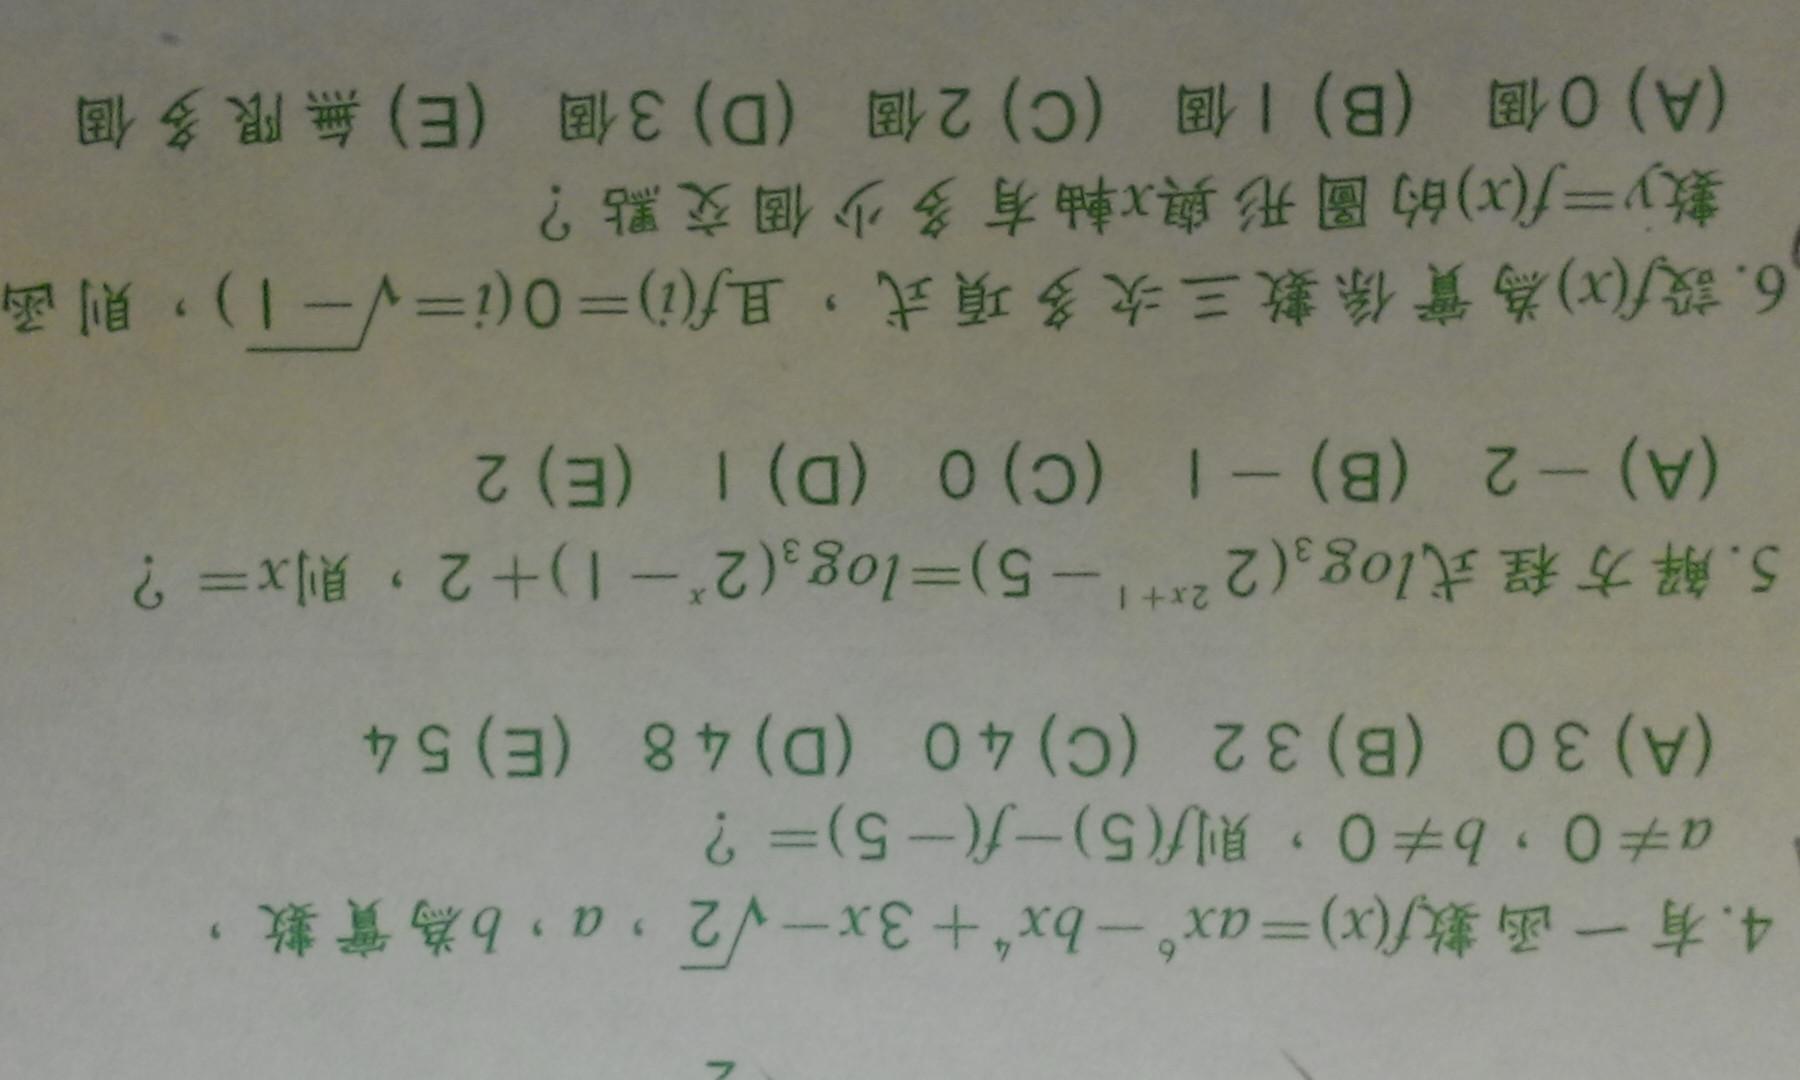 4.有一函數f(x)=ax⁶-bx⁴+3x-√2,a,b為實數,
a≠0,b≠0,則f(5)-f(-5)=?
(A)30 (B)32 (C)40 (D)48 (E)54
5.解方程式log₃(2²ˣ⁺¹-5)=log₃(2ˣ-1)+2,則x=?
(A)-2 (B)-1 (C)0 (D)1 (E)2
6.設f(x)為實係數三次多項式,且f(i)=0(i=√-1),則函
數y=f(x)的圖形與x軸有多少個交點?
(A)0個 (B)1個 (C)2個 (D)3個 (E)無限多個